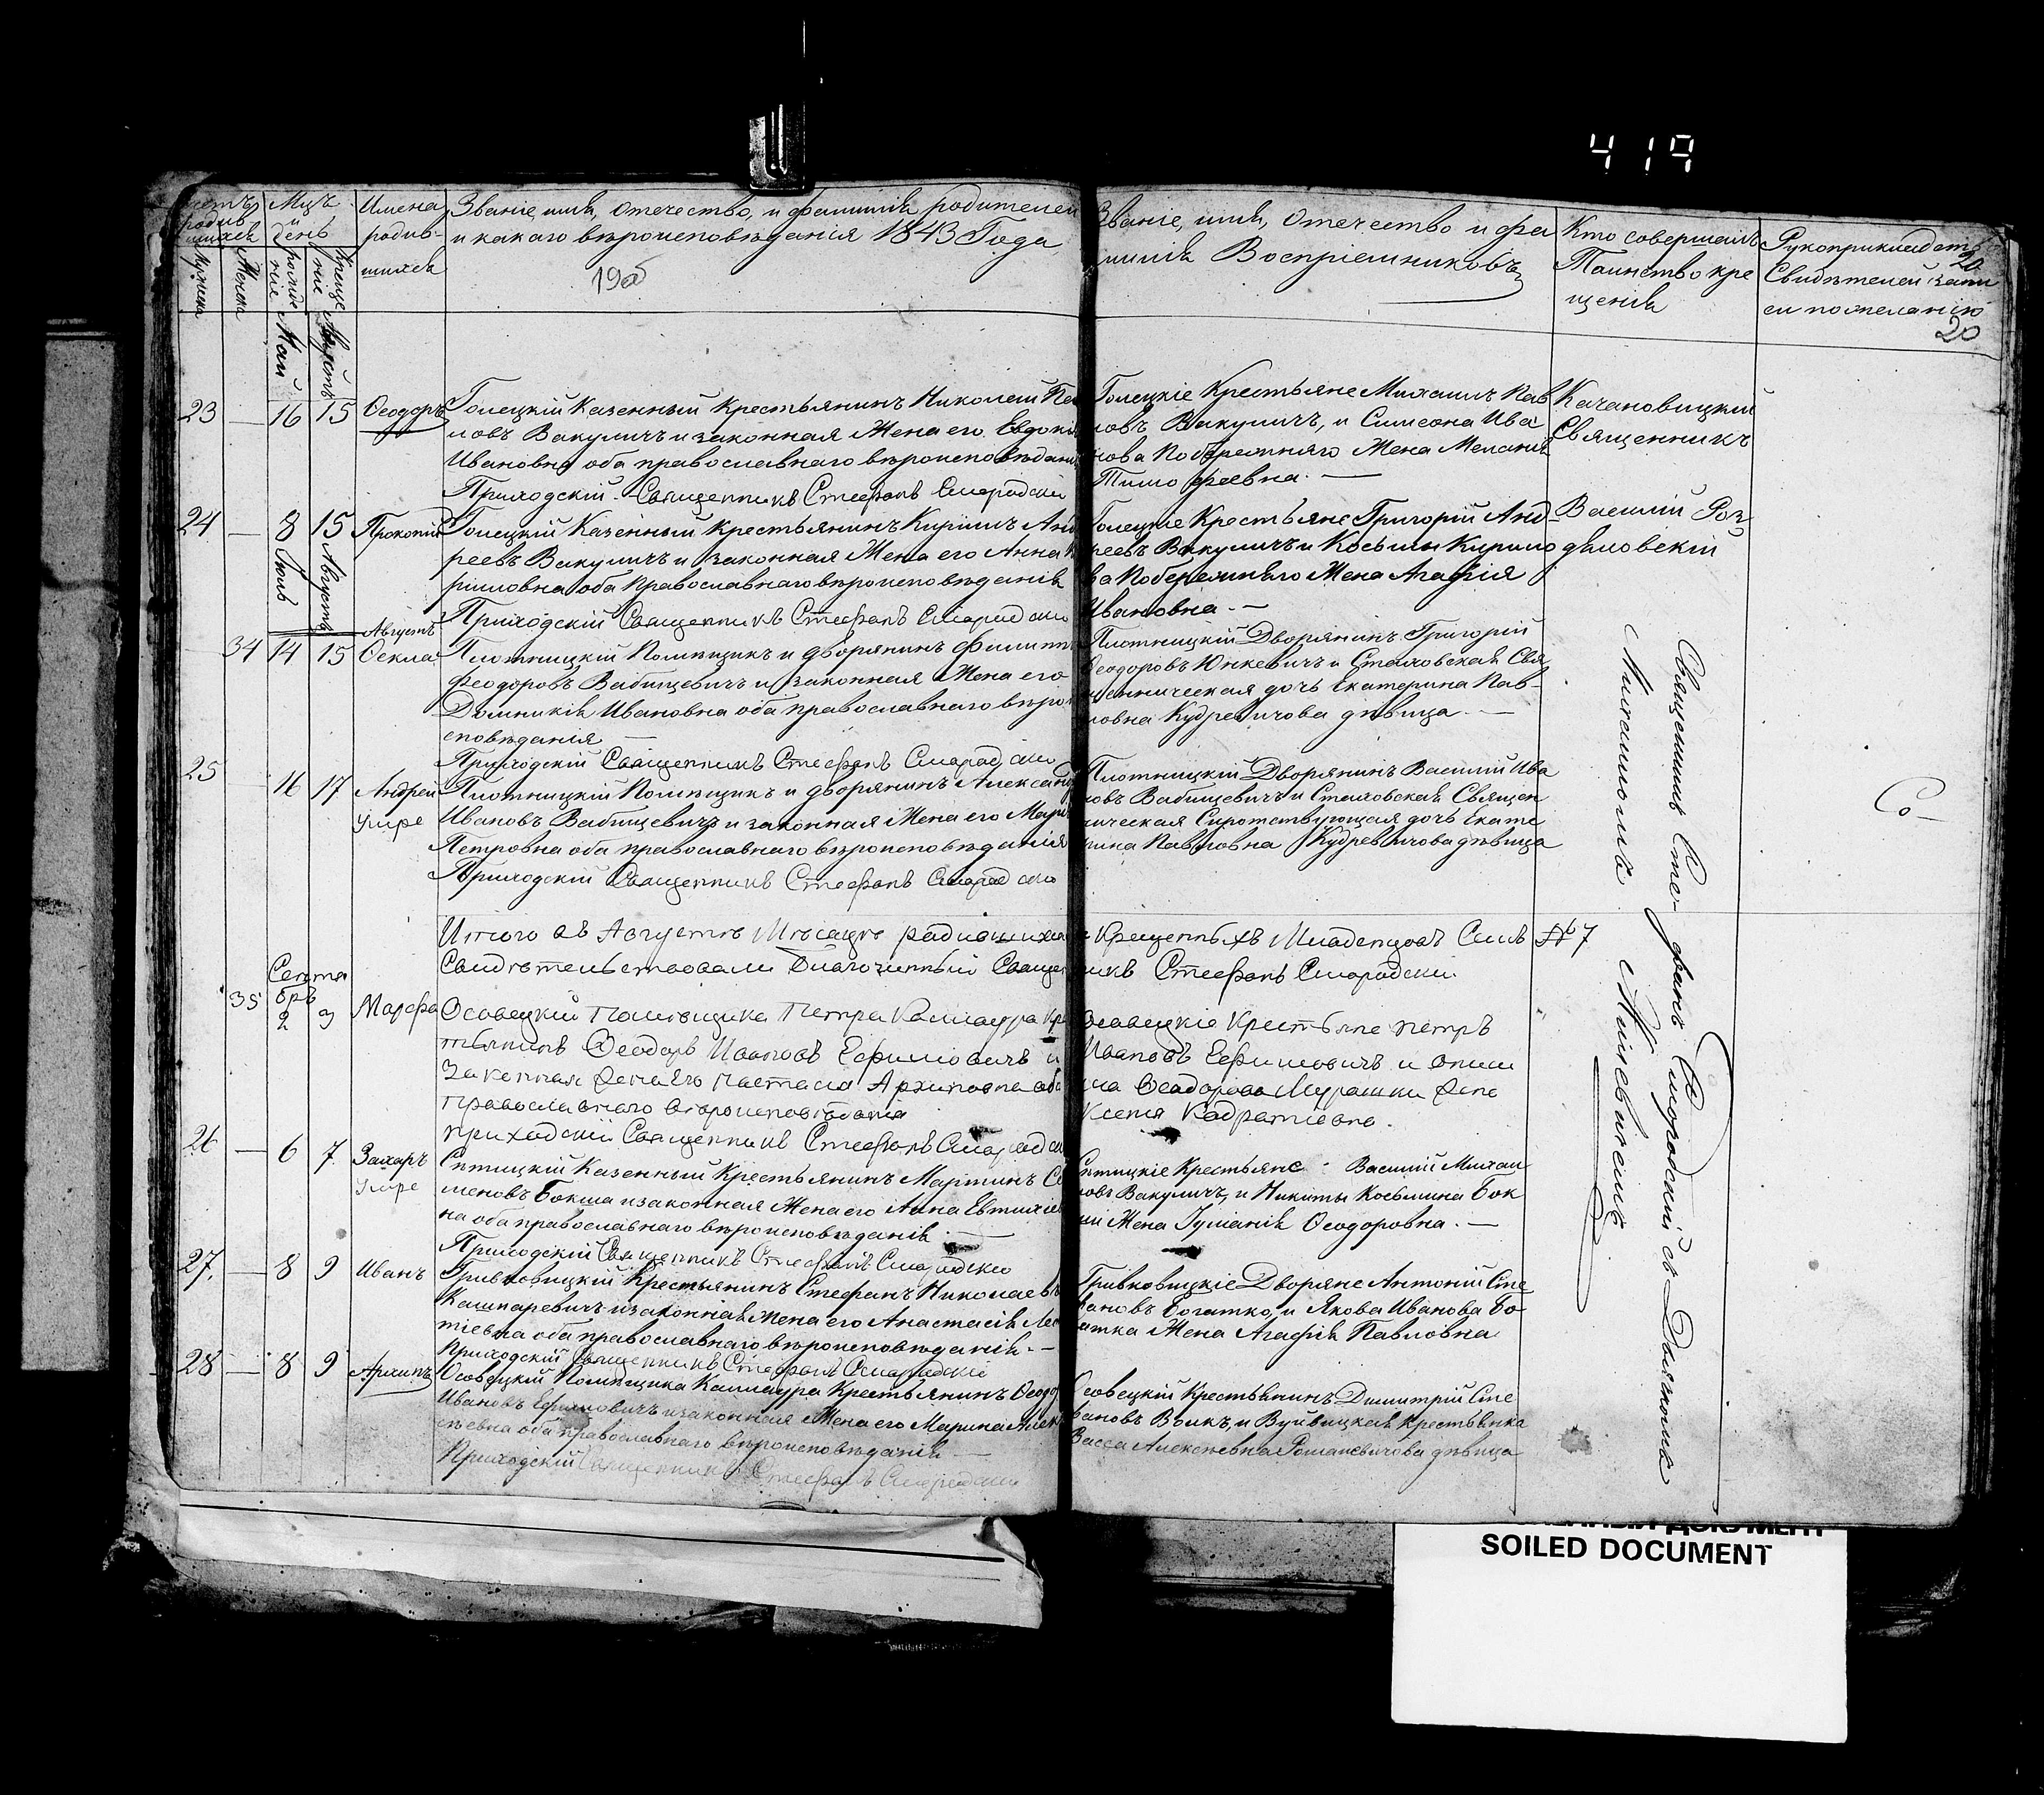 419
Имена
родив-
шихся
Мцъ
и
день
Званіе, имя, отечество, и фамилія родителей
и какаго вѣроисповѣданія 1843 Года
19об
Званіе, имя, Отечество и фа
милія Воспріемниковъ
Кто совершалъ
Таинство кре
щенія
Рукоприкладст
Свидѣтелей запи
си по желанію
20
20
Май Августъ
23 — 16 15 Ѳеодоръ
Голецкій Казенный Крестьянинъ Николай Па
ловъ Вакуличъ и законная Жена его Евдокія
Ивановна оба православнаго вѣроисповѣданія
Приходскій Священникъ Стефанъ Смородски
Голецкіе Крестьяне Михаилъ Пав
ловъ Вакуличъ, и Симеона Ива
нова Побережняго Жена Меланія
Тимофеевна. —
Качановицкій
Священникъ
24 — 8 15 Прокопій
Іюль Августъ
Голецкій Казенный Крестьянинъ Кирилъ Анд
реевъ Вакуличъ и законная Жена его Анна
риловна оба Православнаго вѣроисповѣданія
Приходскій Священникъ Стефанъ Смородски
Голецкіе Крестьяне Григорій Анд-
реевъ Вакуличъ и Косьмы Кирило
ва Побережняго Жена Агафія
Ивановна. —
Василій Роз
дяловскій
Августъ
34 14 15 Ѳекла
Плотницкій Помѣщикъ и дворянинъ Филиппъ
Феодоровъ Вабищевичъ и законная Жена его
Домникія Ивановна оба православнаго вѣрои
сповѣданія —
Приходскій Священникъ Стефанъ Смородски
Плотницкій Дворянинъ Григорій
Ѳеодоровъ Юнкевичъ и Стаховская Свя
щенническая дочь Екатерина Пав-
ловна Кудревичова дѣвица. —
25 16 17 Андрей
умре
Плотницкій Помѣщикъ и дворянинъ Александръ
Ивановъ Вабищевичъ и законная Жена его Марія
Петровна оба православнаго вѣроисповѣданія
Приходскій Священникъ Стефанъ Смородски
Плотницкій Дворянинъ Василій Ива
новъ Вабищевичъ и Стаховская Священ
ническая Сиротствующая дочь Екате
рина Павловна Кудревичова дѣвица
Итого въ Августѣ Мѣсяцѣ радившихся
и Крещенныхъ Младенцовъ № 7
Свидѣтельствовали Благочинный Священ
никъ Стефанъ Смородски
Сентя
брь
35 2 3 Марфа
Осовецкій Помѣщика Петра Калиаура Кре
тьянинъ Ѳеодоръ Ивановъ Ефимовичъ и
Законная Жена Его Настасія Архиповна оба
Православнаго вѣроисповѣданія
Приходскій Священникъ Стефанъ Смородски
Осавецкіе Крестьяне Петръ
Ивановъ Ефимовичъ и Ониси
ма Ѳеодорова Мурашки Жена
Ксенія Кадратіевна.
26 — 6 7 Захаръ
умре
Ситицкій Казенный Крестьянинъ Мартинъ Се
меновъ Бокша и законная Жена его Анна Евтихіев
на оба православнаго вѣроисповѣданія. —
Приходскій Священникъ Стефанъ Смородски
Ситицкіе Крестьяне Василій Михаи
ловъ Вакуличъ, и Никиты Косьмина Бок
ши Жена Іуліанія Ѳеодоровна. —
27. — 8 9 Иванъ
Гривковицкій Крестьянинъ Стефанъ Николаевъ
Кашпаревичъ и законная Жена его Анастасія Лео
тіевна оба православнаго вѣроисповѣданія. —
Приходскій Священникъ Стефанъ Смородскій
Гривковицкіе Дворяне Антоній Сте
фановъ Богатко, и Якова Иванова Бо
гатка Жена Агафія Павловна
28 — 8 9 Архипъ
Осовецкій Помѣщика Калиаура Крестьянинъ Ѳеодо
Ивановъ Ефимовичъ и законная Жена его Марина Алек
сѣевна оба православнаго вѣроисповѣданія —
Приходскій Священникъ Стефанъ Смородски
Осовецкій Крестьянинъ Димитрій Сте
фановъ Волкъ, и Вуйвицкая Крестьянка
Васса Алексѣевна Романевичова дѣвица
Священникъ Стефанъ Смородскій съ Дьячкомъ
Михаиломъ
Со-
SOILED DOCUMENT